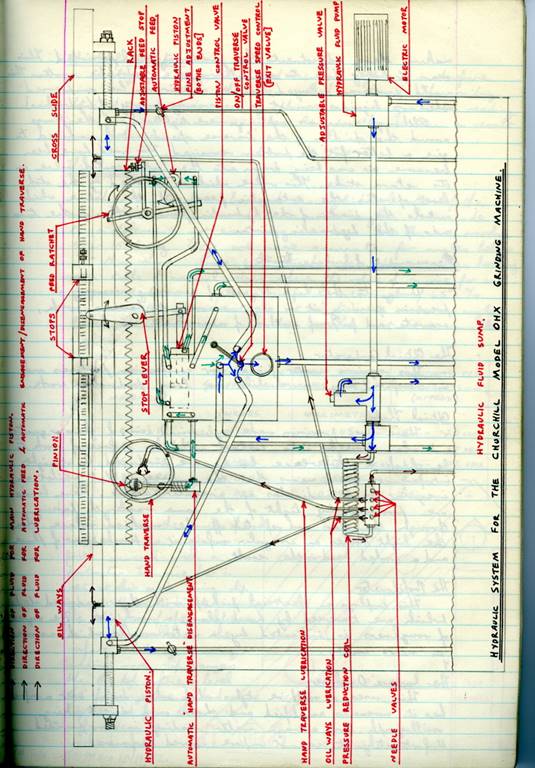 DIRECTION OF FLUID FOR MAIN HYDRAULIC PISTON.
DIRECTION OF FLUID FOR AUTOMATIC FEED & AUTOMATIC ENGAGEMENT/DISENGAGEMENT OF HAND TRAVERSE.
DIRECTION OF FLUID FOR LUBRICATION.
OIL WAYS
PINION
STOPS
FEED RATCHET
CROSS SLIDE
RACK
ADJUSTABLE FEED STOP
AUTOMATIC FEED
HYDRAULIC PISTON
FINE ADJUSTMENT
[BOTHE ENDS]
PISTON CONTROL VALVE
ON/OFF TRAVERSE
CONTROL VALVE
TRAVERSE SPEED CONTROL
[EXIT VALVE]
ADJUSTABLE PRESSURE VALVE
HYDRAULIC FLUID PUMP
ELECTRIC MOTOR
STOP LEVER
HAND TRAVERSE
HYDRAULIC PISTON
AUTOMATIC HAND TRAVERSE DISENGAGEMENT
HAND TRAVERSE LUBRICATION
OIL WAYS LUBRICATION
PRESSURE REDUCTION COIL
NEEDLE VALVES
HYDRAULIC FLUID SUMP.
HYDRAULIC SYSTEM FOR THE CHURCHILL MODEL OHX GRINDING MACHINE.